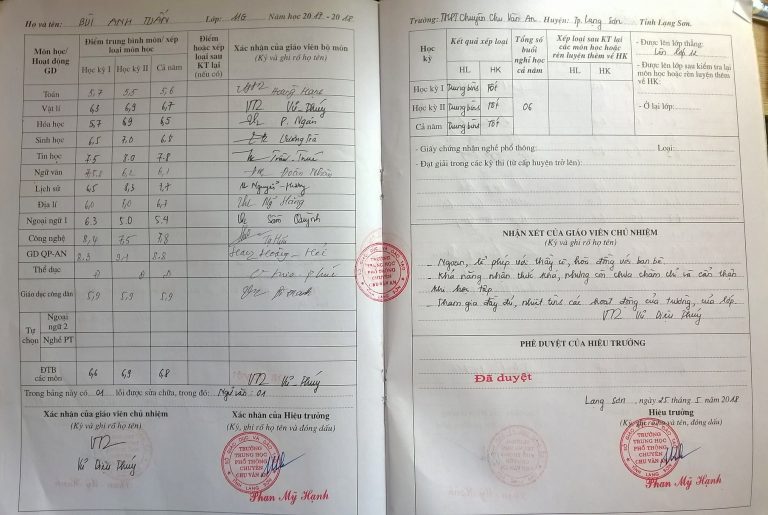 Họ và tên: BÙI ANH TUẤN Lớp: 11G Năm học 2017 - 2018
Môn học/ Hoạt động GD
Điểm trung bình môn/ xếp loại môn học
Học kỳ I Học kỳ II Cả năm
Điểm hoặc xếp loại sau KT lại (nếu có)
Xác nhận của giáo viên bộ môn
(Ký và ghi rõ họ tên)
Toán 5,7 5,5 5,6
Vật lí 6,3 6,9 6,7 Vũ Thúy
Hóa học 5,7 6,9 6,5 P. Ngân
Sinh học 6,5 7,0 6,8
Tin học 7,5 8,0 7,8
Ngữ văn 6,2 6,1
Lịch sử 6,5 8,3 7,7
Địa lí 6,0 6,0
Ngoại ngữ 1 6.3 5.0 5.4 Sầm Quỳnh
Công nghệ 8,4 7,5 7,8
GD QP-AN 8,3 9,1 8,8
Thể dục Đ Đ Đ
Giáo dục công dân 5,9 5,9 5,9
Tự chọn
Ngoại ngữ 2
Nghề PT
ĐTB các môn 6,6 6,9 6,8 Vũ Thúy
Trong bảng này có 01 lỗi được sửa chữa, trong đó: Ngữ văn: 01
Xác nhận của giáo viên chủ nhiệm
(Ký và ghi rõ họ tên)
Vũ Diệu Thúy
Xác nhận của Hiệu trưởng
(Ký, ghi rõ họ tên và đóng dấu)
TRƯỜNG
TRUNG HỌC
PHỔ THÔNG
CHUYÊN
CHU VĂN AN
Phan Mỹ Hạnh
Trường: THPT Chuyên Chu Văn An. Huyện: Tp. Lạng Sơn Tỉnh Lạng Sơn.
Học kỳ
Kết quả xếp loại
HL HK
Tổng số buổi nghỉ học cả năm
Xếp loại sau KT lại các môn học hoặc rèn luyện thêm về HK
HL HK
Học kỳ I Trung bình Tốt
Học kỳ II Trung bình Tốt 06
Cả năm Trung bình Tốt
- Được lên lớp thẳng: Lên lớp 12
- Được lên lớp sau kiểm tra lại môn học hoặc rèn luyện thêm về HK:
- Ở lại lớp:
- Giấy chứng nhận nghề phổ thông: Loại:
- Đạt giải trong các kỳ thi (từ cấp huyện trở lên):
NHẬN XÉT CỦA GIÁO VIÊN CHỦ NHIỆM
(Ký và ghi rõ họ tên)
- Ngoan, lễ phép với thầy cô, hòa đồng với bạn bè.
- Khả năng nhận thức khá, nhưng còn chưa chăm chỉ và cẩn thận
khi học tập.
- Tham gia đầy đủ, nhiệt tình các hoạt động của trường, của lớp.
Vũ Diệu Thúy
PHÊ DUYỆT CỦA HIỆU TRƯỞNG
Đã duyệt
Lạng Sơn, ngày 25 tháng 5 năm 2018
Hiệu trưởng
(Ký, ghi rõ họ tên và đóng dấu)
TRƯỜNG
TRUNG HỌC
PHỔ THÔNG
CHUYÊN
CHU VĂN AN
Phan Mỹ Hạnh